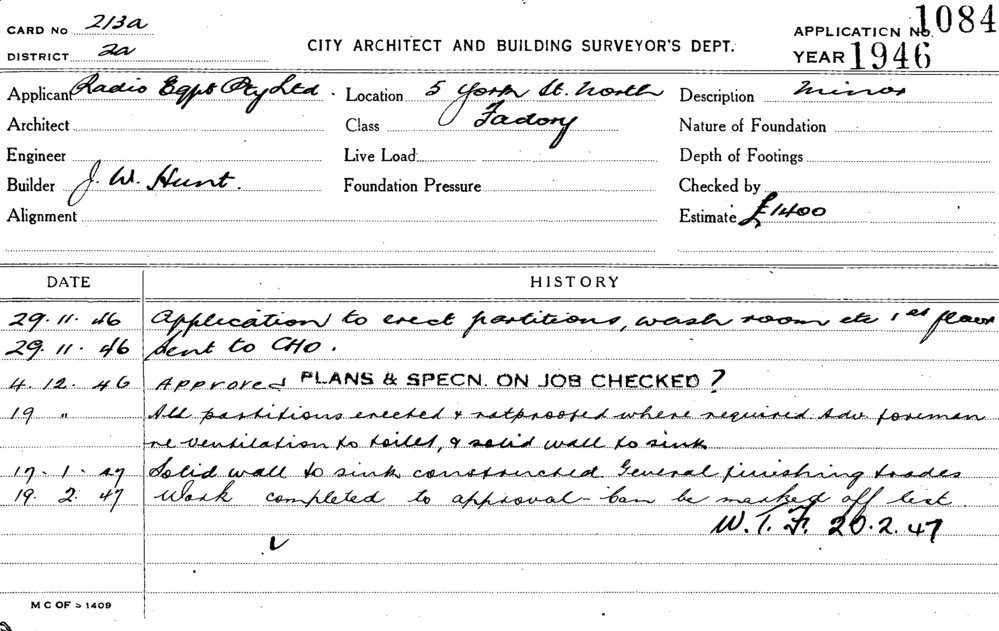 CARD NO 213a
DISTRICT 2a
CITY ARCHITECT AND BUILDING SURVEYOR'S DEPT.
APPLICATION NO. 1084
YEAR 1946
Applicant Radio Eqpt Pty Ltd. Location 5 York St. North Description Minor
Architect Class Factory Nature of Foundation
Engineer Live Load Depth of Footings
Builder J. W. Hunt. Foundation Pressure Checked by
Alignment Estimate £1400
DATE HISTORY
29.11.46 Application to erect partitions, wash room etc 1st floor
29.11.46 Sent to CHO.
4.12.46 Approved PLANS & SPECN. ON JOB CHECKED?
19 " All partitions erected & ratproofed where required Adv foreman
re ventilation to toilet, & solid wall to sink
17.1.47 Solid wall to sink constructed General finishing trades
19.2.47 Work completed to approval - Can be marked off list.
W.T.F. 20.2.47
M C OF S 1409